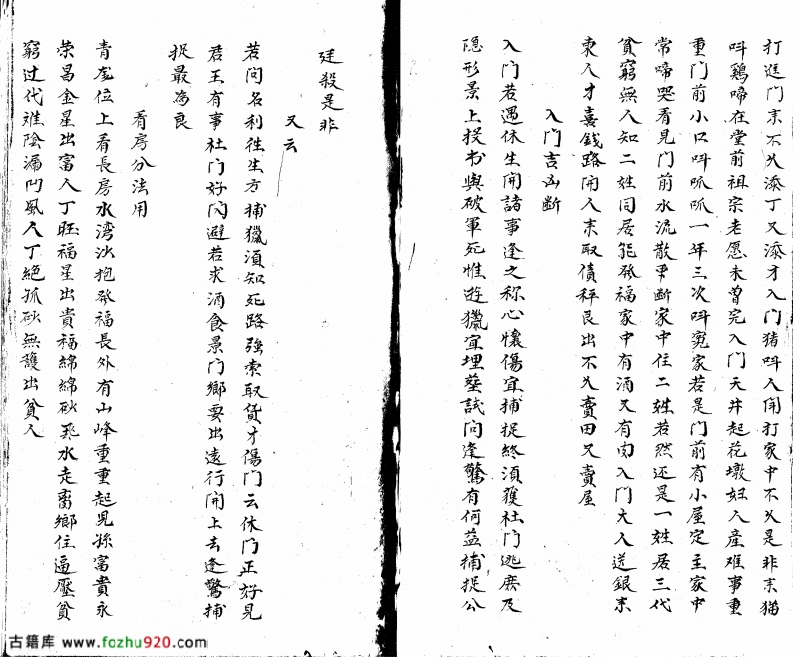 打進门来不久添丁又添才入门猪呌入闹打家中不久是非来猫
呌鷄啼在堂前祖宗老愿未曾完入门天井起花墩妇人産难事重
重门前小口呌呱呱一年三次呌寃家若是门前有小屋定主家中
常啼哭看見门前水流散事断家中住二姓若然还是一姓居三代
貧窮無人知二姓同居能發福家中有酒又有肉入门大人送銀来
東人才喜錢路開人来取债秤艮出不久賣田又賣屋
入门吉凶断
入门若遇休生開諸事逢之称心懷傷宜捕捉終須獲杜门逃𢇲及
隐形景上投书與破軍死惟遊獵宜埋塟試问逢驚有何益捕捉公
廷殺是非
又云
若问名利徃生方捕獵須知死路強索取债才傷门云休门正好見
君王有事杜门好闪避若求酒食景门鄉要出遠行開上去逢驚捕
捉最為良
看房分法用
青龙位上看長房水湾沙抱發福長外有山峰重重起兒孫富貴永
荣昌金星出富人丁旺福星出貴福綿綿砂飛水走离鄉住逼壓貧
窮过代进陰漏凹風人丁絕孤砂無護出貧人
古籍库 www.fozhu920.com